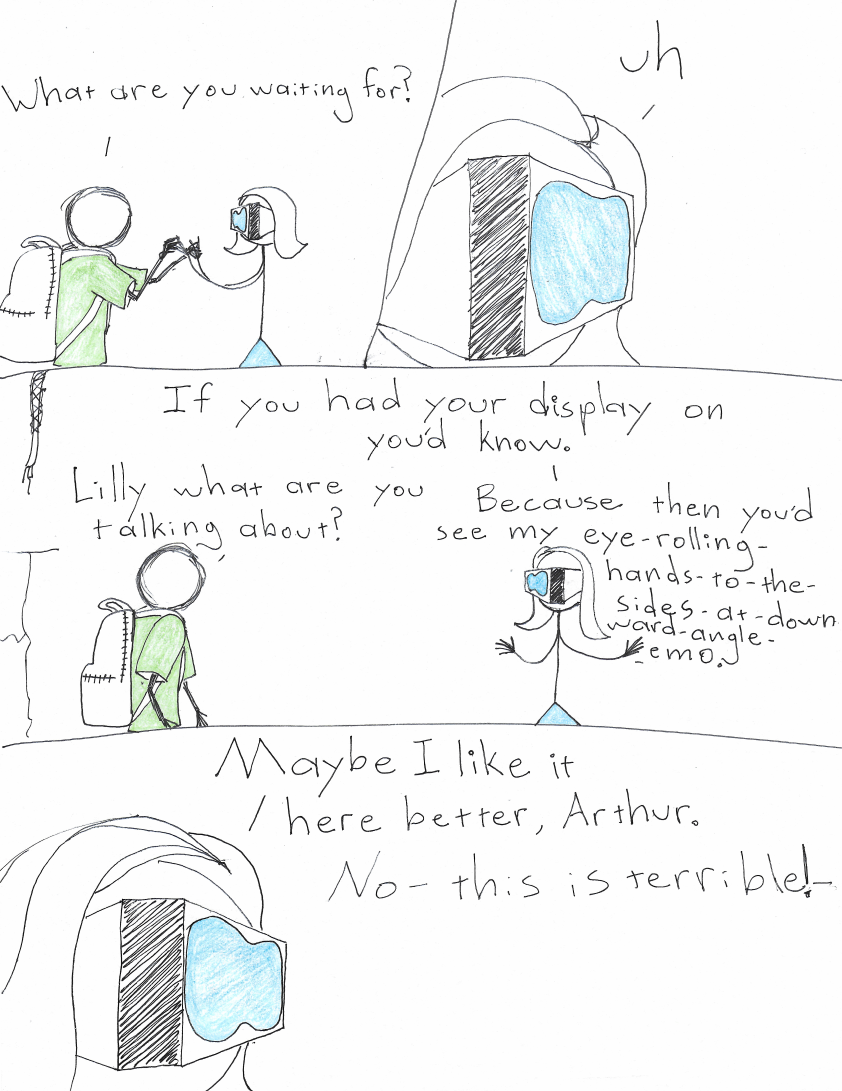 What are you waiting for?
uh
If you had your display on
you'd know.
Lilly what are you
talking about?
Because then you'd
see my eye-rolling-
hands-to-the-
sides-at-down
ward-angle-
-emo.
Maybe I like it
here better, Arthur.
No- this is terrible!-